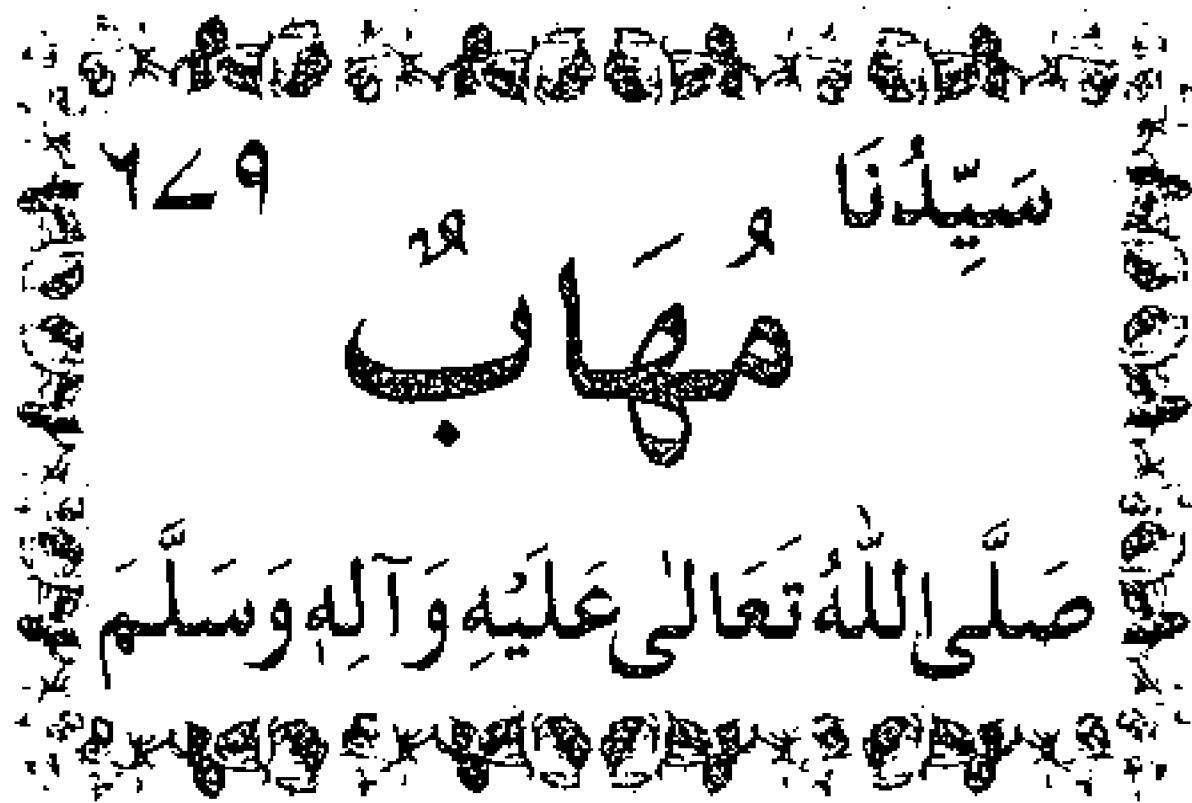 سَيِّدُنَا ۶۷۹
مُهَابٌ
صَلَّى اللّٰهُ تَعَالٰى عَلَيْهِ وَآلِهٖ وَسَلَّمَ